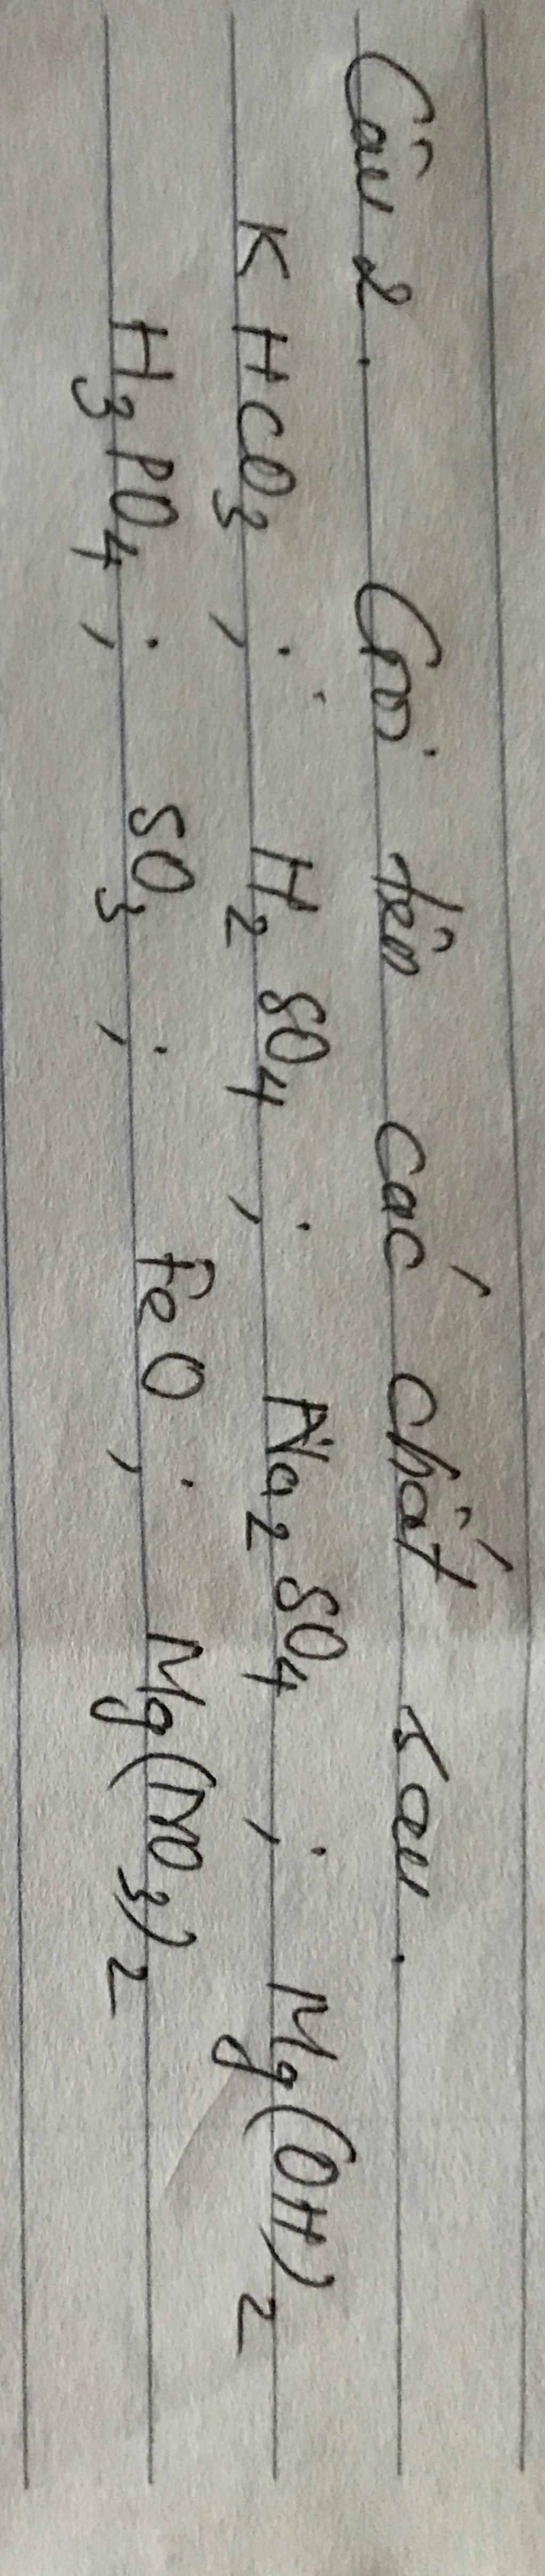 Câu 2. Gọi tên các chất sau.
KHCO₃ ; H₂SO₄ ; Na₂SO₄ ; Mg(OH)₂
H₃PO₄ ; SO₃ ; FeO ; Mg(NO₃)₂